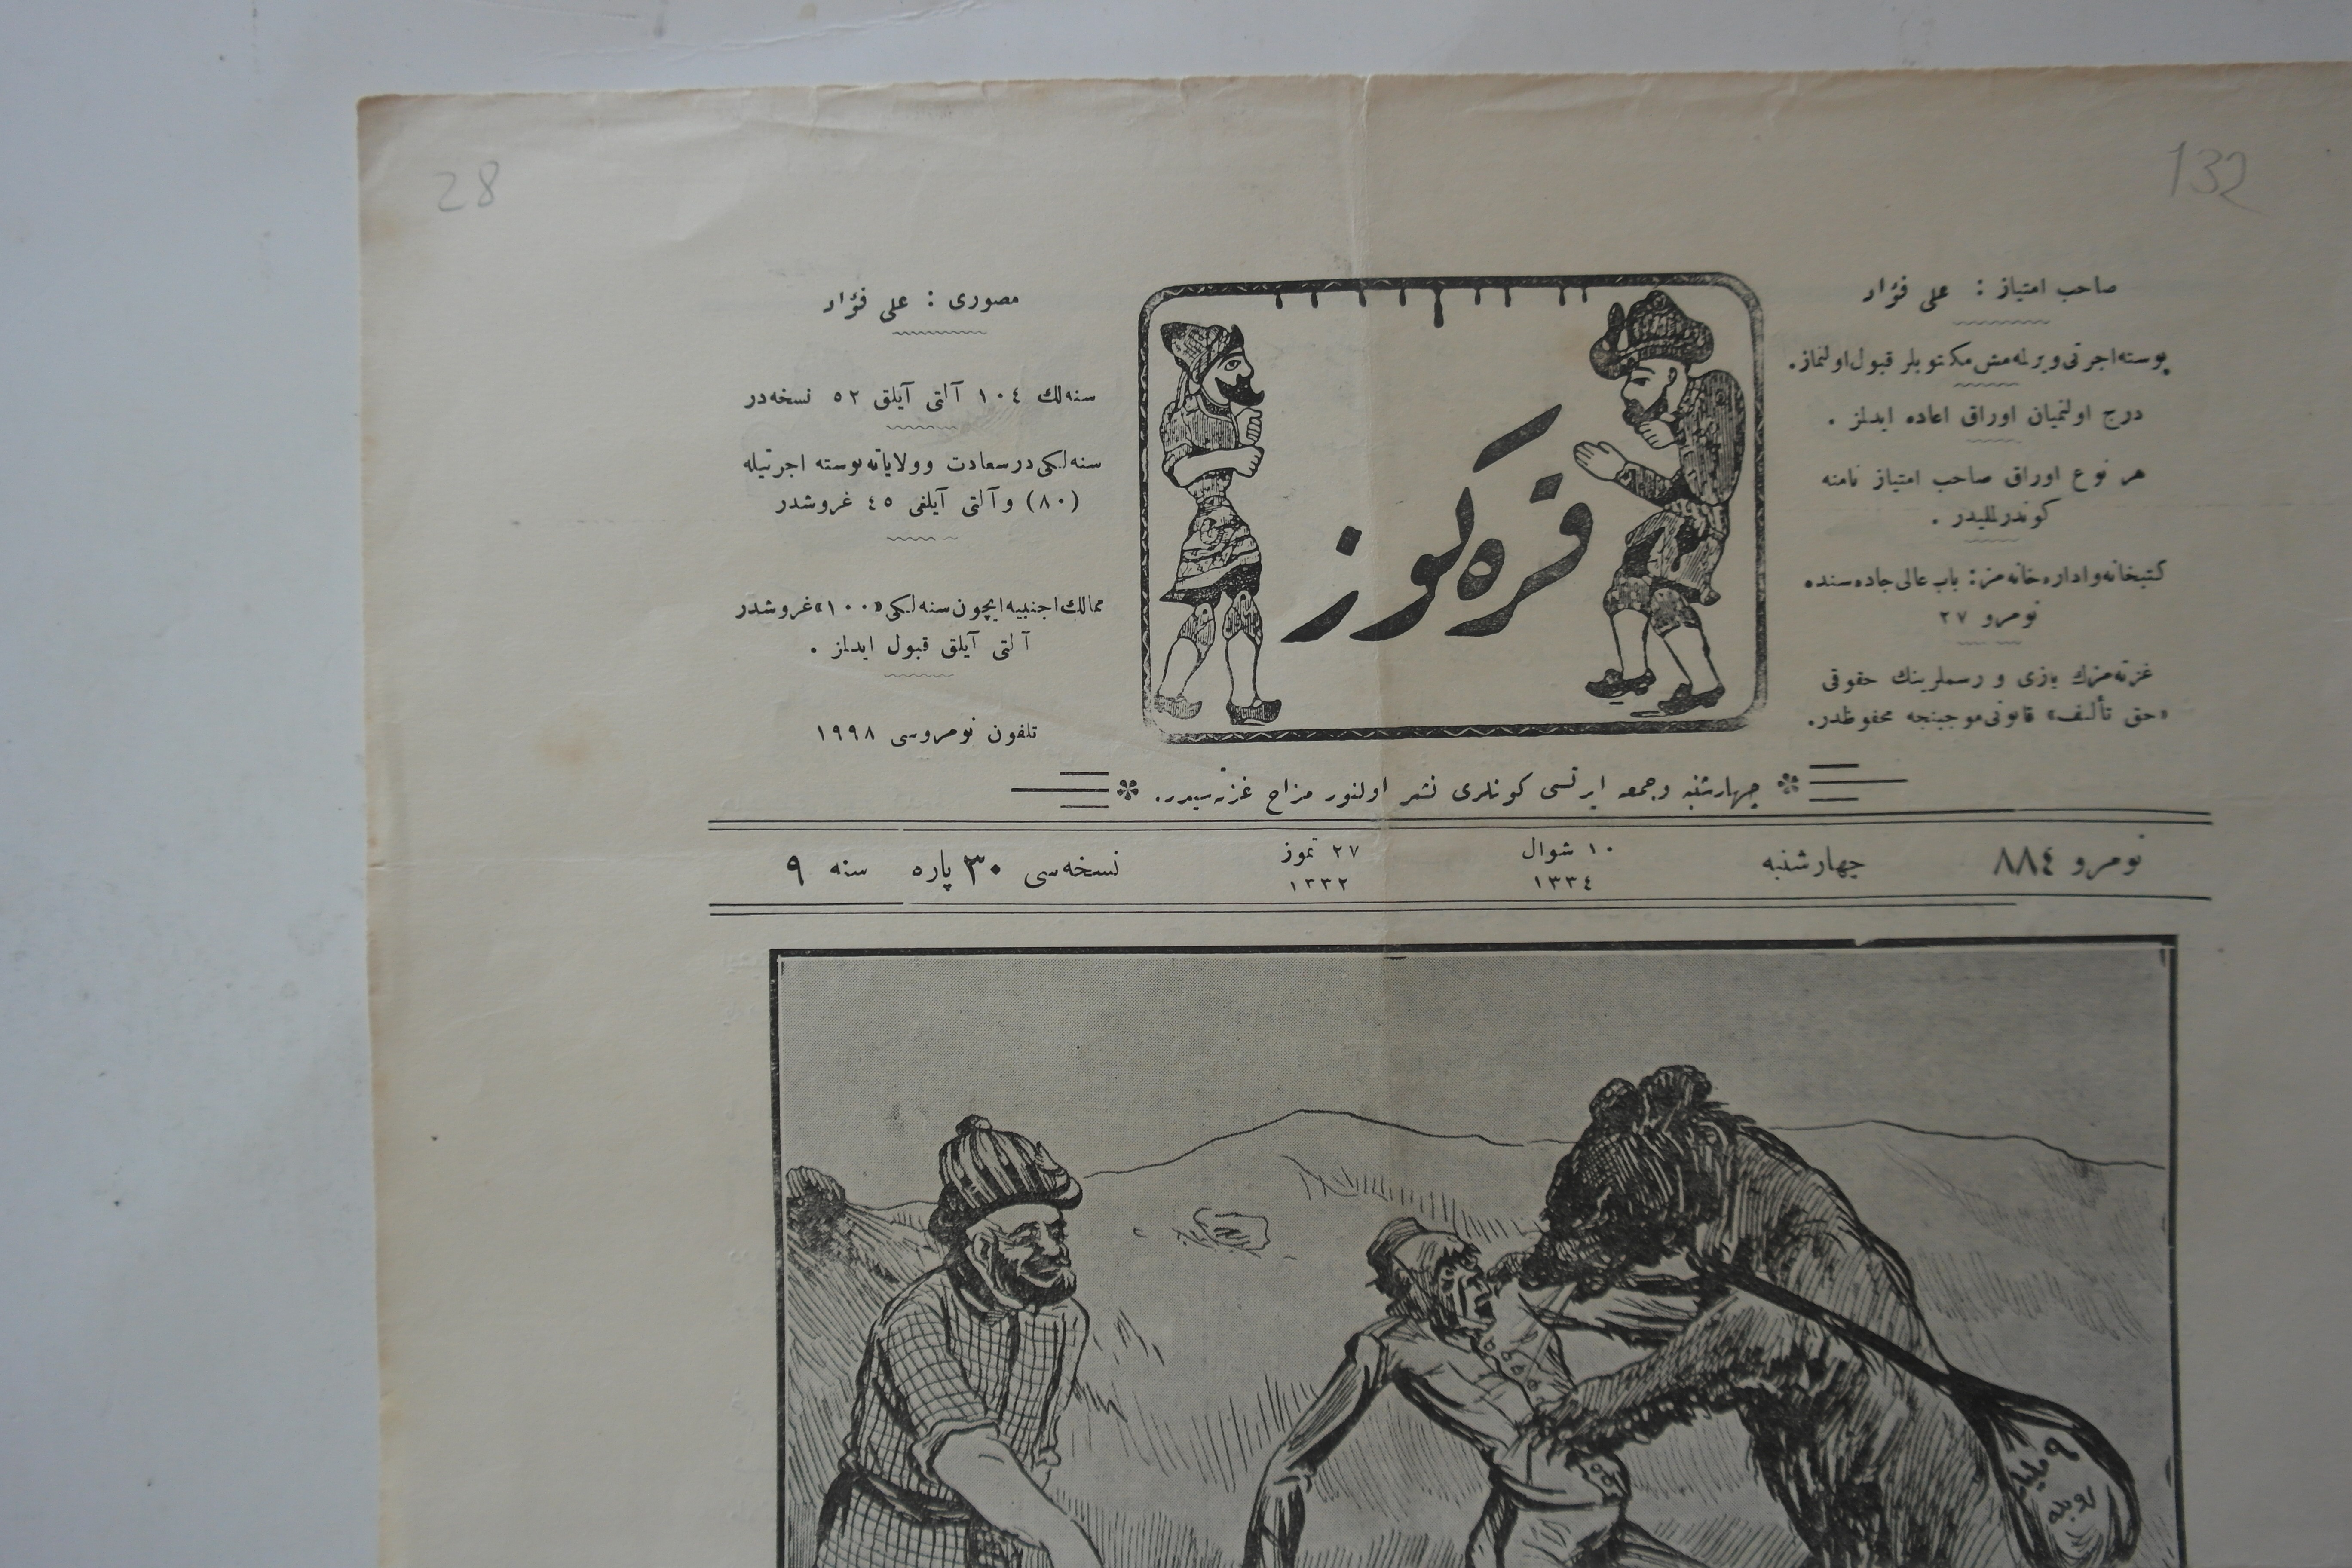 28
132
صاحب امتياز : علی فؤاد
پوسته‌اجرتی‌ويرلمه‌مش‌مكتوبلر قبول‌اولنماز.
درج اولنميان اوراق اعاده ايدلمز .
هر نوع اوراق صاحب امتياز نامنه
كوندرلمليدر .
كتبخانه‌واداره‌خانه‌مز: باب‌عالی‌جاده‌سنده
نومرو ۲۷
غزته‌مزك يازی و رسملرينك حقوقی
«حق تأليف» قانونی‌موجبنجه محفوظدر.
قره‌كوز
مصوری : علی فؤاد
سنه‌لك ۱۰٤ آلتی آيلق ۵۲ نسخه‌در
سنه‌لكی‌درسعادت وولاياته‌پوسته اجرتيله
(۸۰) وآلتی آيلغی ٤۵ غروشدر
ممالك‌اجنبيه‌ايچون‌سنه‌لكی«۱۰۰»غروشدر
آلتی آيلق قبول ايدلمز .
تلفون نومروسی ۱۹۹۸
چهارشنبه وجمعه ايرتسی كونلری نشر اولنور مزاح غزته‌سيدر.
نومرو ۸۸٤ چهارشنبه ۱۰ شوال ۱۳۳٤ ۲۷ تموز ۱۳۳۲ نسخه‌سی ۳۰ پاره سنه ۹
۹
روبله